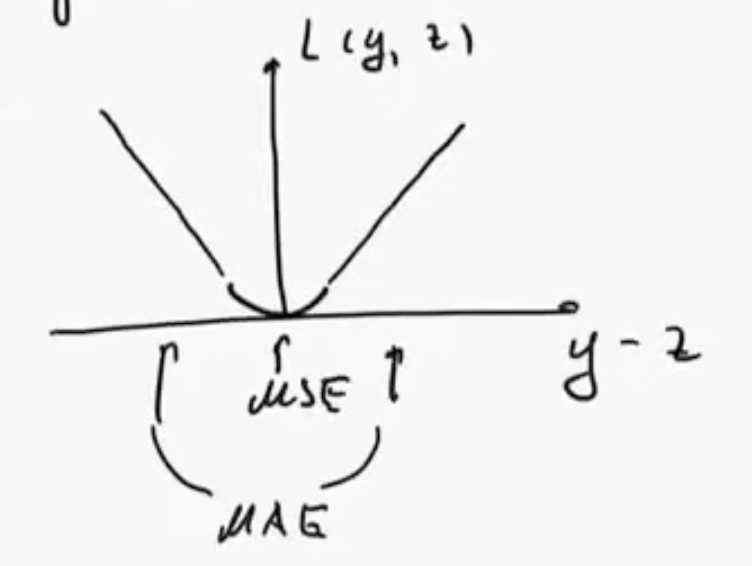 L(y, z)
y - z
MSE
MAE